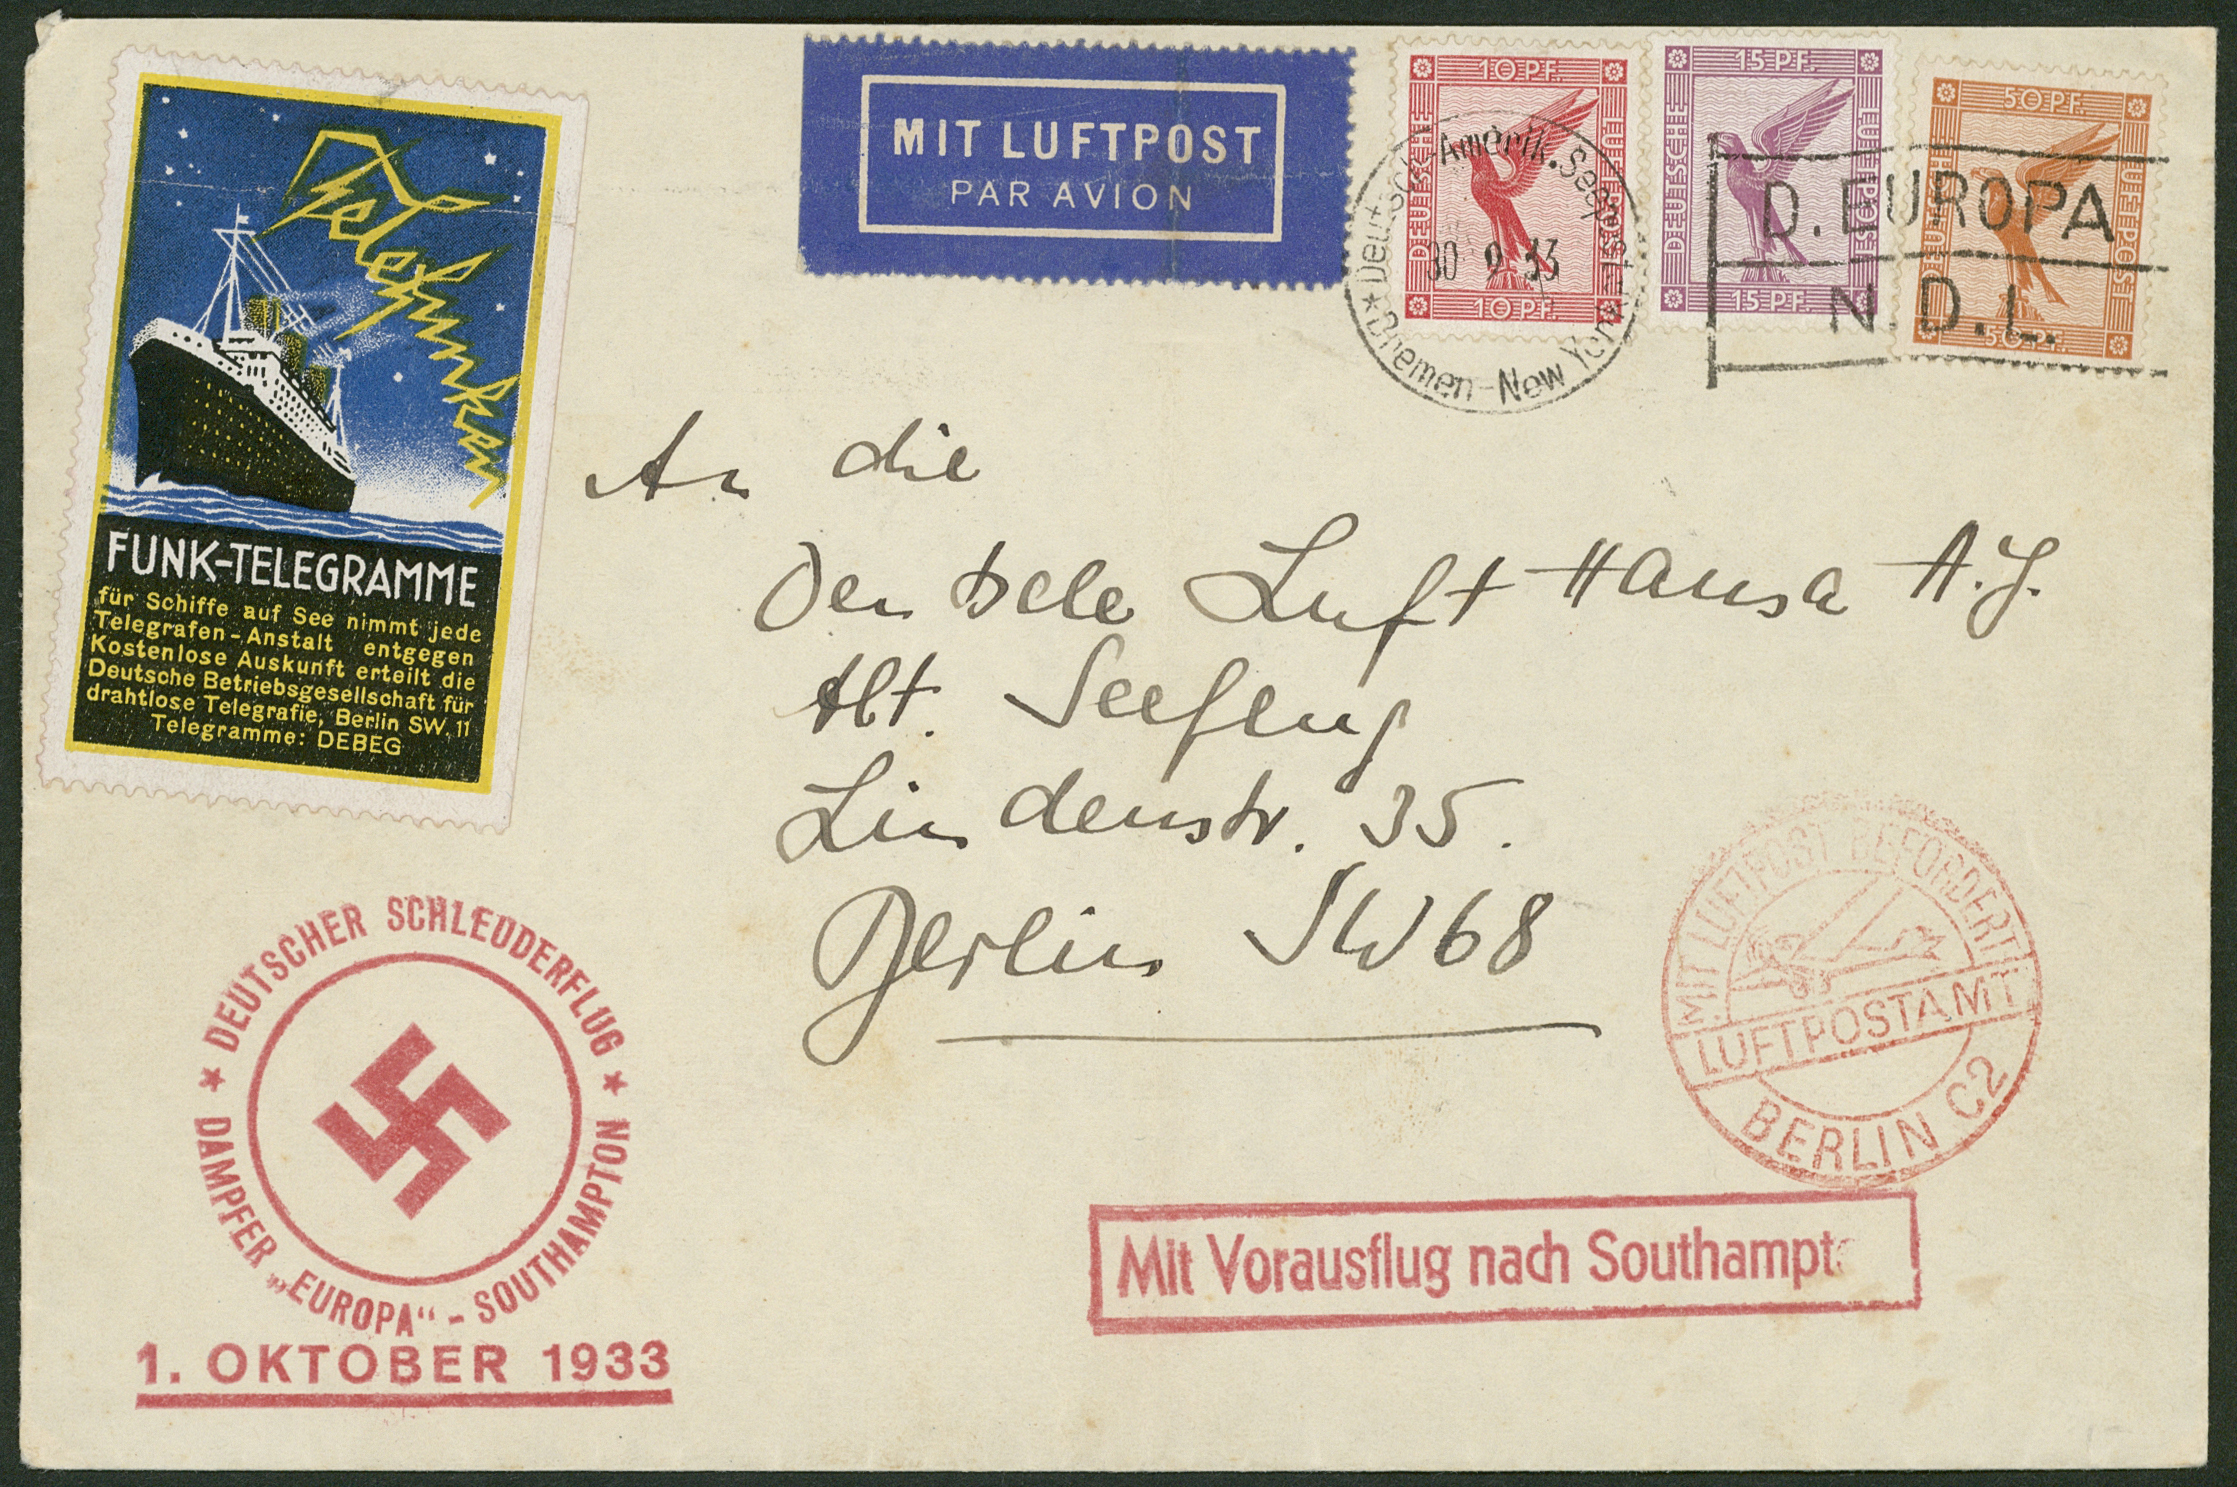 Telefunken
FUNK-TELEGRAMME
für Schiffe auf See nimmt jede
Telegrafen-Anstalt entgegen
Kostenlose Auskunft erteilt die
Deutsche Betriebsgesellschaft für
drahtlose Telegrafie, Berlin SW. 11
Telegramme: DEBEG
MIT LUFTPOST
PAR AVION
10 PF.
DEUTSCHE
LUFTPOST
10 PF.
15 PF.
DEUTSCHE
LUFTPOST
15 PF.
50 PF.
DEUTSCHE
LUFTPOST
50 PF.
Deutsch-Amerik. Seepost
30 9 33
* Bremen-New York *
D. EUROPA
N.D.L.
An die
Deutsche Luft Hansa A.G.
Abt. Seeflug
Lindenstr. 35.
Berlin SW 68
MIT LUFTPOST BEFÖRDERT
LUFTPOSTAMT
BERLIN C2
* DEUTSCHER SCHLEUDERFLUG *
DAMPFER „EUROPA“ - SOUTHAMPTON
1. OKTOBER 1933
Mit Vorausflug nach Southampt